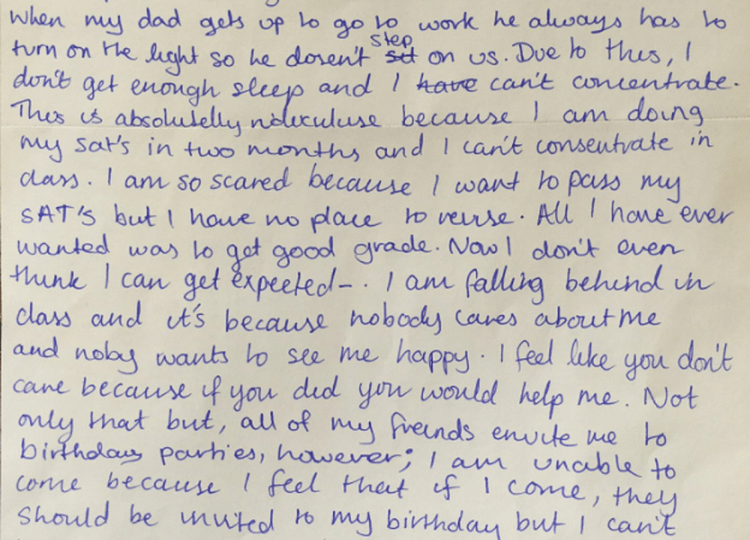 When my dad gets up to go to work he always has to
turn on the light so he dosen't step on us. Due to this, I
don't get enough sleep and I have can't concentrate.
This is absolutelly rediculuse because I am doing
my sat's in two months and I can't consentrate in
class. I am so scared because I want to pass my
SAT's but I have no place to reverse. All I have ever
wanted was to get good grade. Now I don't even
think I can get expected-. I am falling behind in
class and it's because nobody cares about me
and noby wants to see me happy. I feel like you don't
care because if you did you would help me. Not
only that but, all of my freinds envite me to
birthday parties, however; I am unable to
come because I feel that if I come, they
should be invited to my birthday but I can't